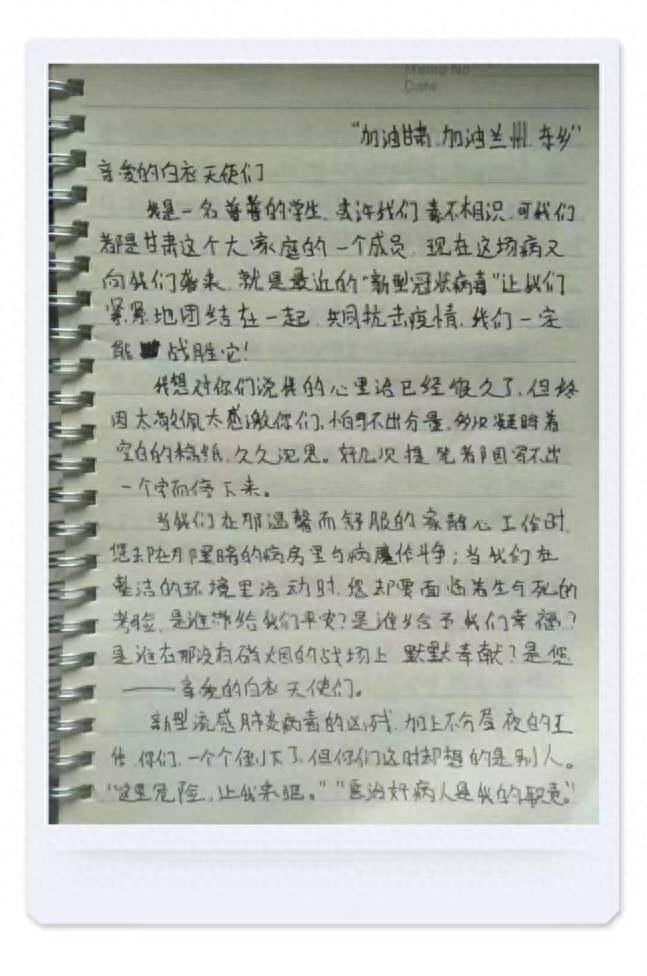 Memo No
Date
“加油甘肃.加油兰州.东乡”
亲爱的白衣天使们
我是一名普普的学生.或许我们素不相识.可我们
都是甘肃这个大家庭的一个成员.现在这场病又
向我们袭来.就是最近的“新型冠状病毒”让我们
紧紧地团结在一起.共同抗击疫情.我们一定
能 战胜它！
我想对你们说我的心里话已经很久了.但终
因太敬佩太感激你们.怕写不出分量.多次凝眸着
空白的稿纸.久久沉思。好几次提笔者因写不出
一个字而停下来。
当我们在那温馨而舒服的家静心工作时.
您却在阴暗的病房里与病魔作斗争；当我们在
整洁的环境里活动时.您却要面临着生与死的
考验.是谁带给我们平安？是谁给予我们幸福？
是谁在那没有硝烟的战场上 默默奉献？是您
——亲爱的白衣天使们。
新型流感肺炎病毒的凶残.加上不分昼夜的工
作.你们.一个个倒下了.但你们这时却想的是别人。
“这里危险.让我来吧。”“医治好病人是我的职责。”